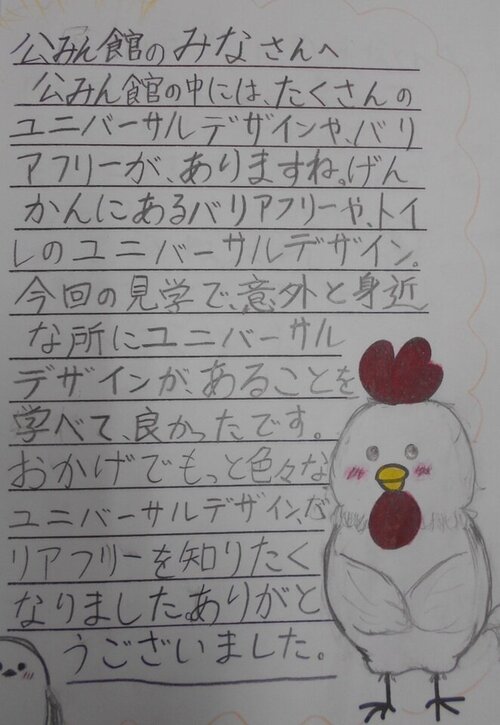 公みん館のみなさんへ
公みん館の中には、たくさんの
ユニバーサルデザインや、バリ
アフリーが、ありますね。げん
かんにあるバリアフリーや、トイ
レのユニバーサルデザイン。
今回の見学で、意外と身近
な所にユニバーサル
デザインが、あることを
学べて、良かったです。
おかげでもっと色々な
ユニバーサルデザイン、バ
リアフリーを知りたく
なりました。ありがと
うございました。